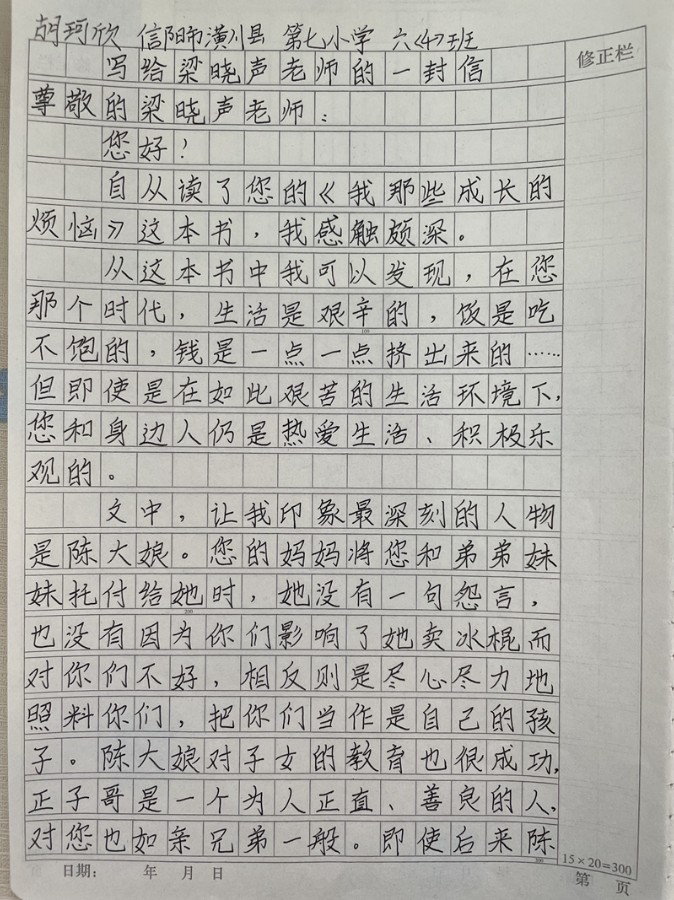 胡珂欣 信阳市潢川县 第七小学 六〈4〉班
修正栏
写给梁晓声老师的一封信
尊敬的梁晓声老师：
您好！
自从读了您的《我那些成长的
烦恼》这本书，我感触颇深。
从这本书中我可以发现，在您
那个时代，生活是艰辛的，饭是吃
100
不饱的，钱是一点一点挤出来的……
但即使是在如此艰苦的生活环境下，
您和身边人仍是热爱生活、积极乐
观的。
文中，让我印象最深刻的人物
是陈大娘。您的妈妈将您和弟弟妹
妹托付给她时，她没有一句怨言，
200
也没有因为你们影响了她卖冰棍而
对你们不好，相反则是尽心尽力地
照料你们，把你们当作是自己的孩
子。陈大娘对子女的教育也很成功，
正子哥是一个为人正直、善良的人，
对您也如亲兄弟一般。即使后来陈
300
15×20=300
日期： 年 月 日
第 页